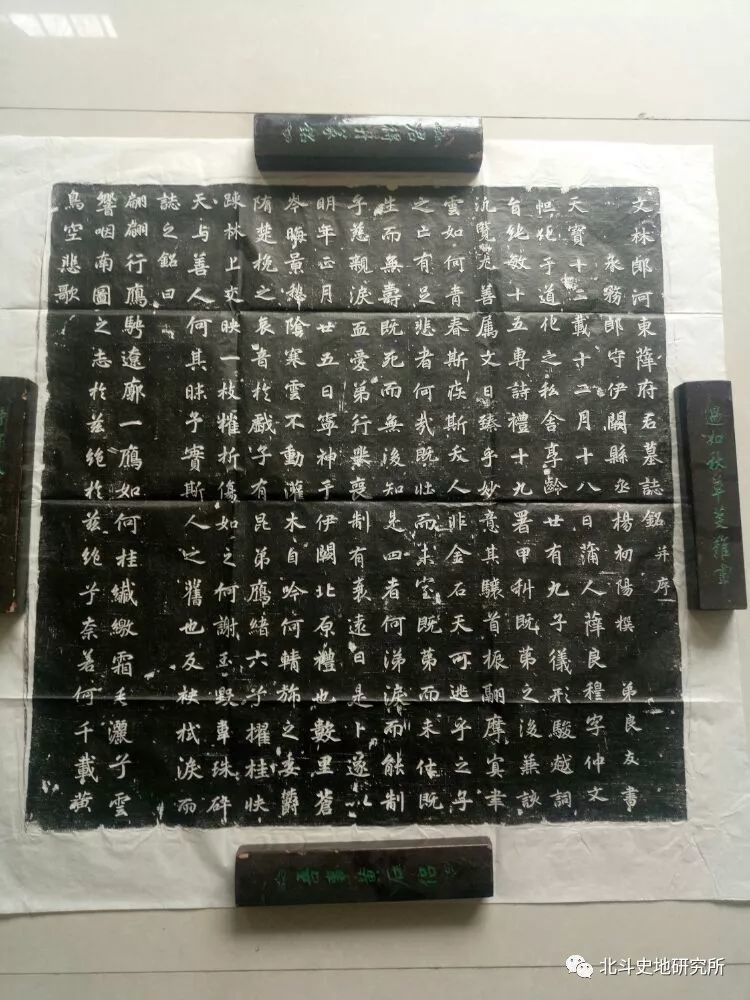 文林郎河東薛府君墓誌銘 并序
務郎守伊闕縣丞楊初陽撰 弟良友書
天寶十二載十二月十八日蒲人薛良穆字仲文
化於手道化之私舍享齡廿有九子儀形駿越詞
旨純敏十五專詩禮十九署甲科既第之後兼談
沉覽尤善属文日臻乎妙意其驤首振翮摩寘
雲如何青春斯疾斯矣人非金石天可逃乎之子
之亡有足悲者何哉既壯而未室既第而未仕既
生而無壽既死而無後知是四者何涕淚而能制
乎慈親淚血愛弟行喪制有袁遠日是卜遂以
明年正月廿五日寧神于伊闕北原禮也數里蒼
岑晦景愁陰寒雲不動灌木自吟何輤旐之委欝
隋楚挽之哀音於戲子有昆弟鴈緒六子擢桂
踈林上交映一枝摧折傷如之何謝玉野車珠碎
天与善人何其昧乎實斯人之舊也反袂拭淚而
誌之銘曰
翩翩行鴈騁遠廓一鴈如何桂纖繳霜毛灑兮雲
響咽南圖之志於兹絶於兹絶兮奈若何千載黄
鳥空悲歌
北斗史地研究所